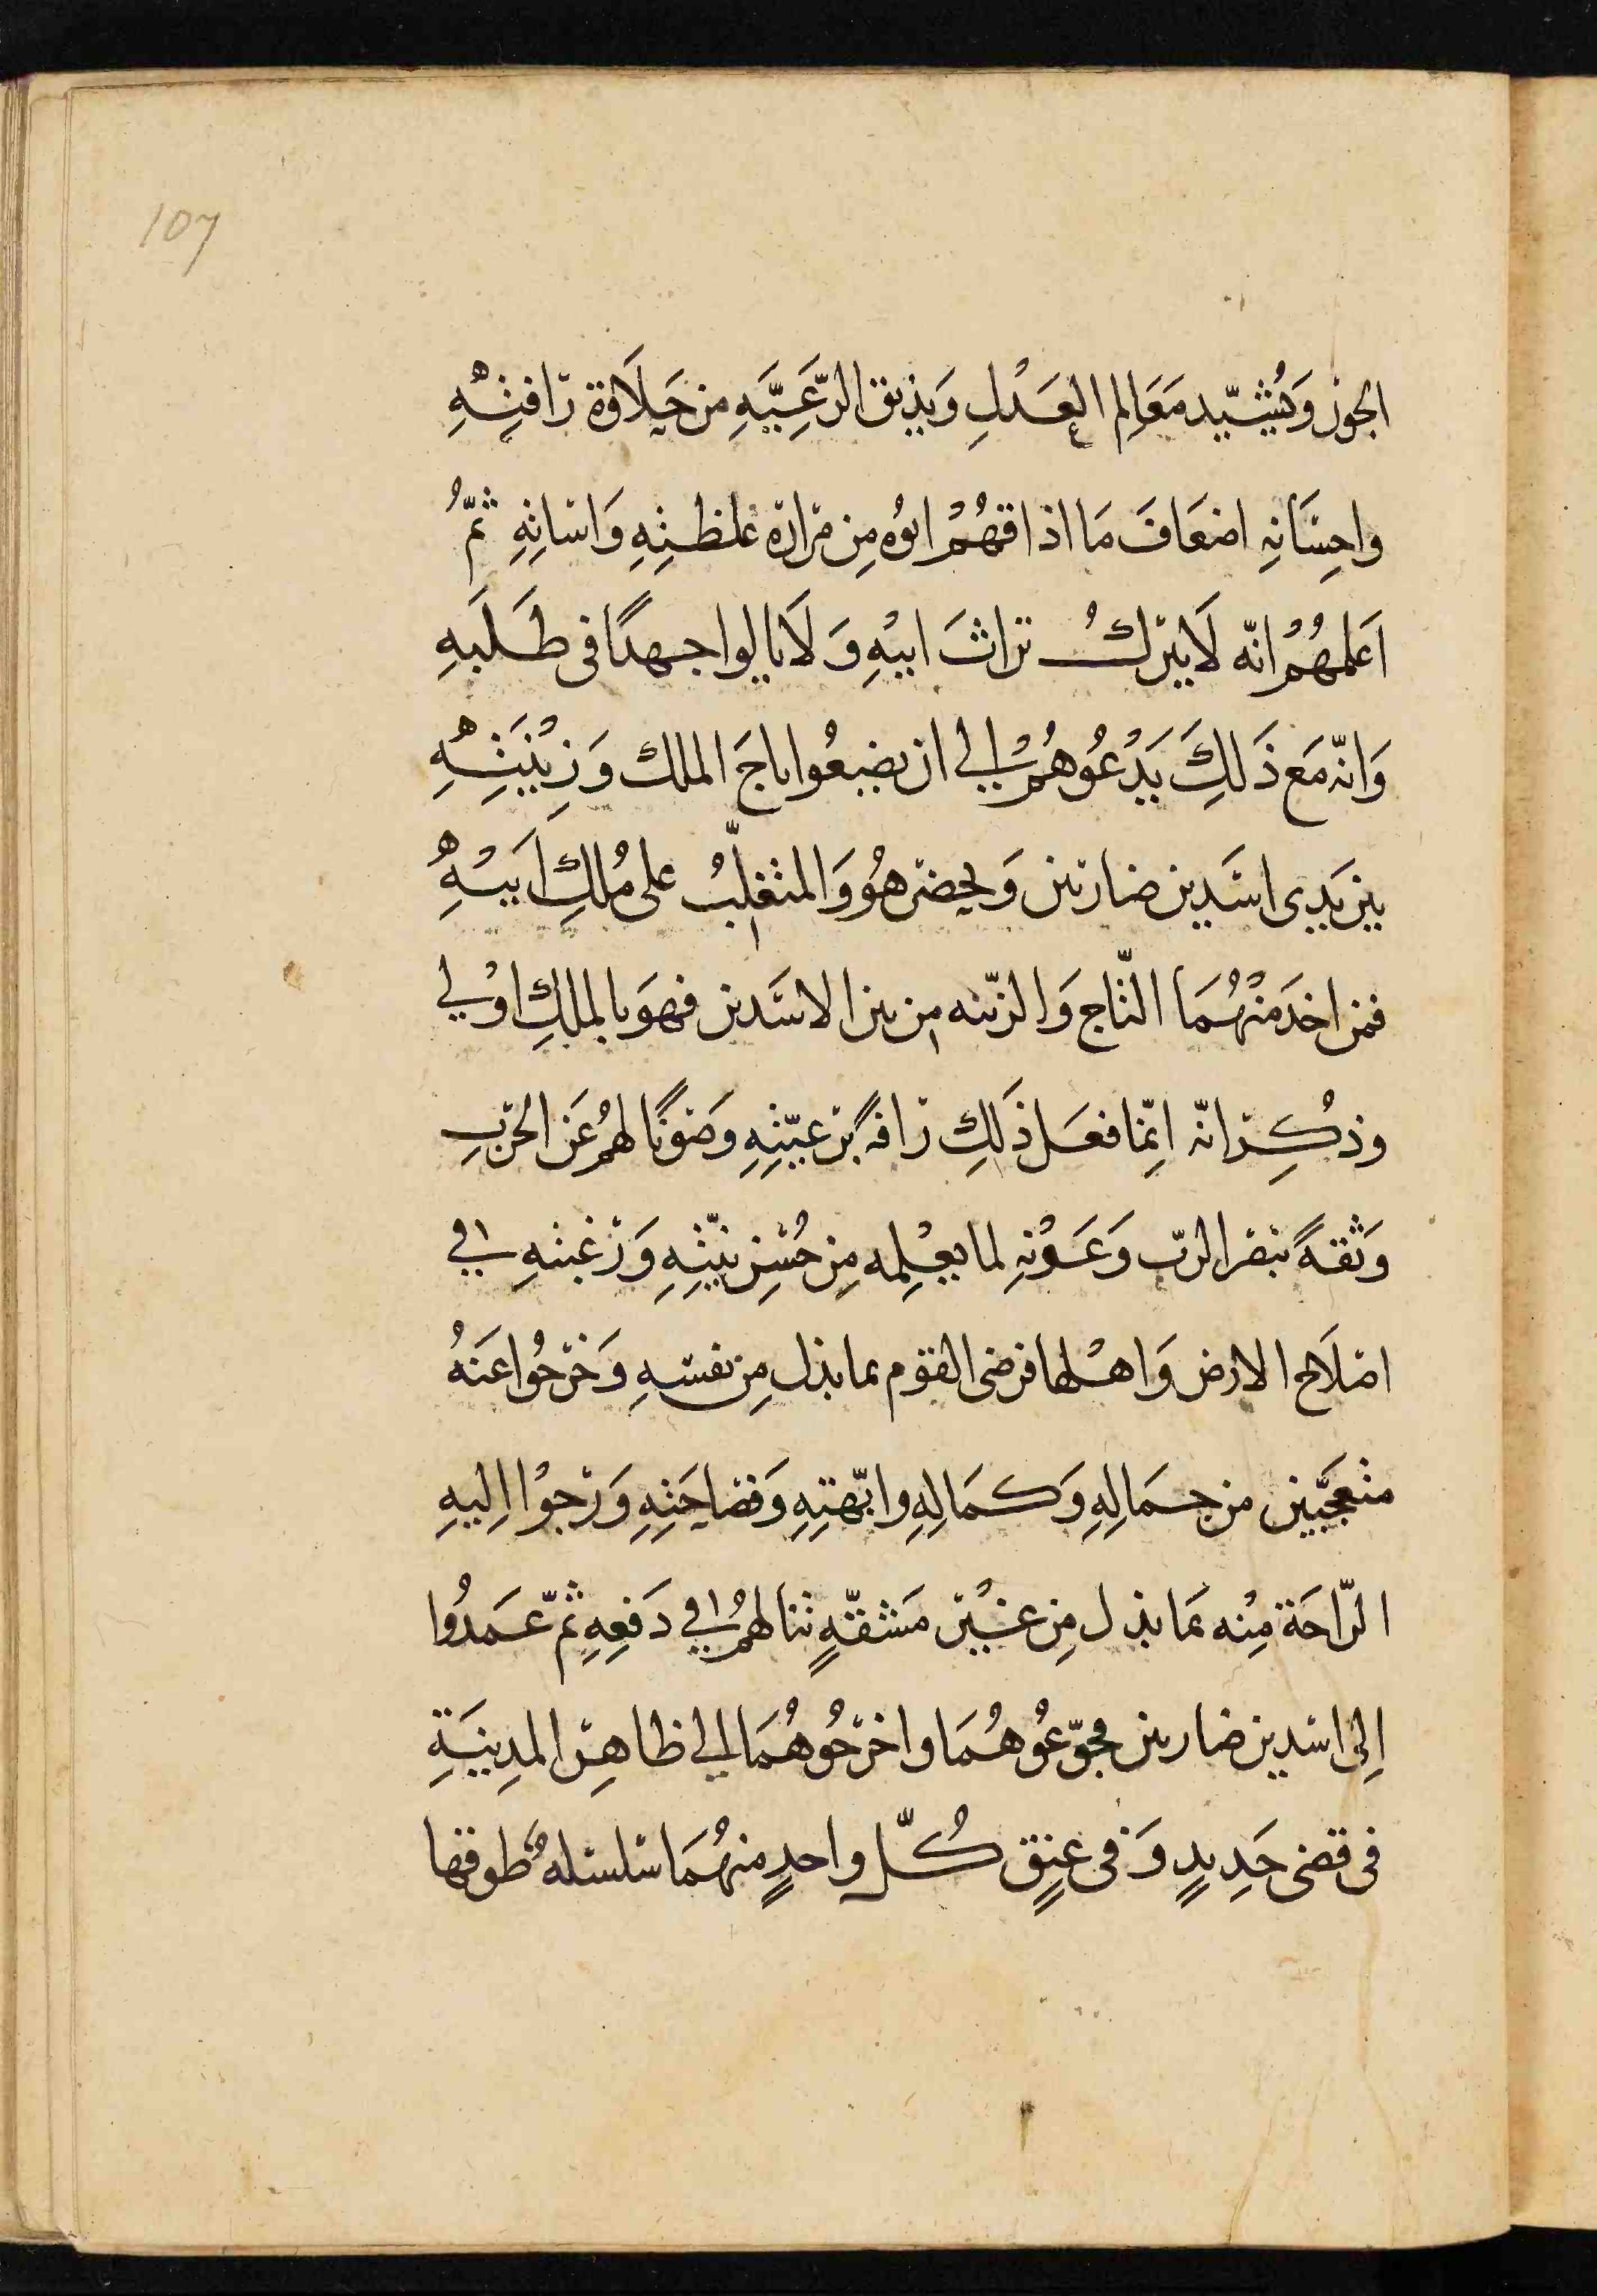 107
الجَوْر وَيُشَيّد مَعَالم العَدْلِ وَيذيق الرّعَيَّهِ من حَلَاوَة رَافتِهِ
واحِسَانِهِ اضعَافَ مَا اذاقهُمْ ابوُه مِن مرارة غلظتِهِ وَاسَاتهِ ثمّ
اَعلمهُمْ انّه لَا يترك تراثَ ابيْهِ وَلَا يالوا جهدًا فى طَلَبهِ
وَانّه مَع ذَلكِ يَدْعُوهُمْ الي ان يضعُوا تاجَ الملك وَزِيْنَتِهِ
بين يَدى اسَدين ضاريين وَيحضر هُو وَالمتغلّبُ على مُلكِ اَبيْهِ
فمن اخذ منْهُمَا التّاج وَالزّينه من بين الاسَدين فهوَ بالملكِ اوْلي
وذُكِر انّه انّما فعَل ذَلكِ رافةً برَعيّتِهِ وصَونًا لهمُ عَن الحربِ
وَثقةً بنصر الربّ وَعَوْنهِ لما يعْلِمه مِن حُسْن نيّتِهِ وَرَغبتهِ في
اصْلَاح الارض وَاهْلها فرضى القوم بما بذل مِن نفسهِ وَخرجُوا عَنهُ
متعجّبين من جمَالِهِ وَكمَالِهِ وابّهتِهِ وَفصَاحَتِهِ وَرَجوْا اليهِ
الرّاحَة مِنْه بما بذل مِن غيْر مَشقّهٍ تنالهمُ في دَفعِهِ ثمّ عَمَدُوا
اِلى اسَدين ضاريين فجوّعُوهُمَا واخرجُوهُمَا الي ظاهِر المدِينَةِ
فى قفص حَدِيدٍ وَفى عنقِ كُلّ واحدٍ منهُمَا سلسله طوقها